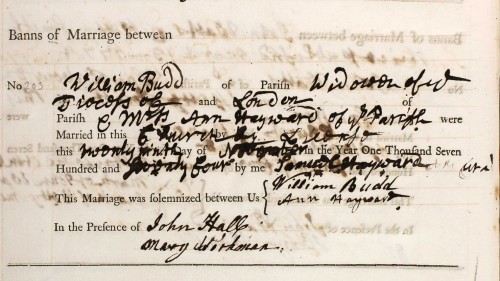 Banns of Marriage between
No 203 William Budd of Parish Widower of ye
Diocess of and London of
Parish & Mrs Ann Hayward of ys Parish were
Married in this Church by Licence
this twenty ninth Day of November in the Year One Thousand Seven
Hundred and Seventy Four by me Samuel Hayward
This Marriage was solemnized between Us { William Budd
Ann Hayward
In the Presence of John Hall
Mary Wickman